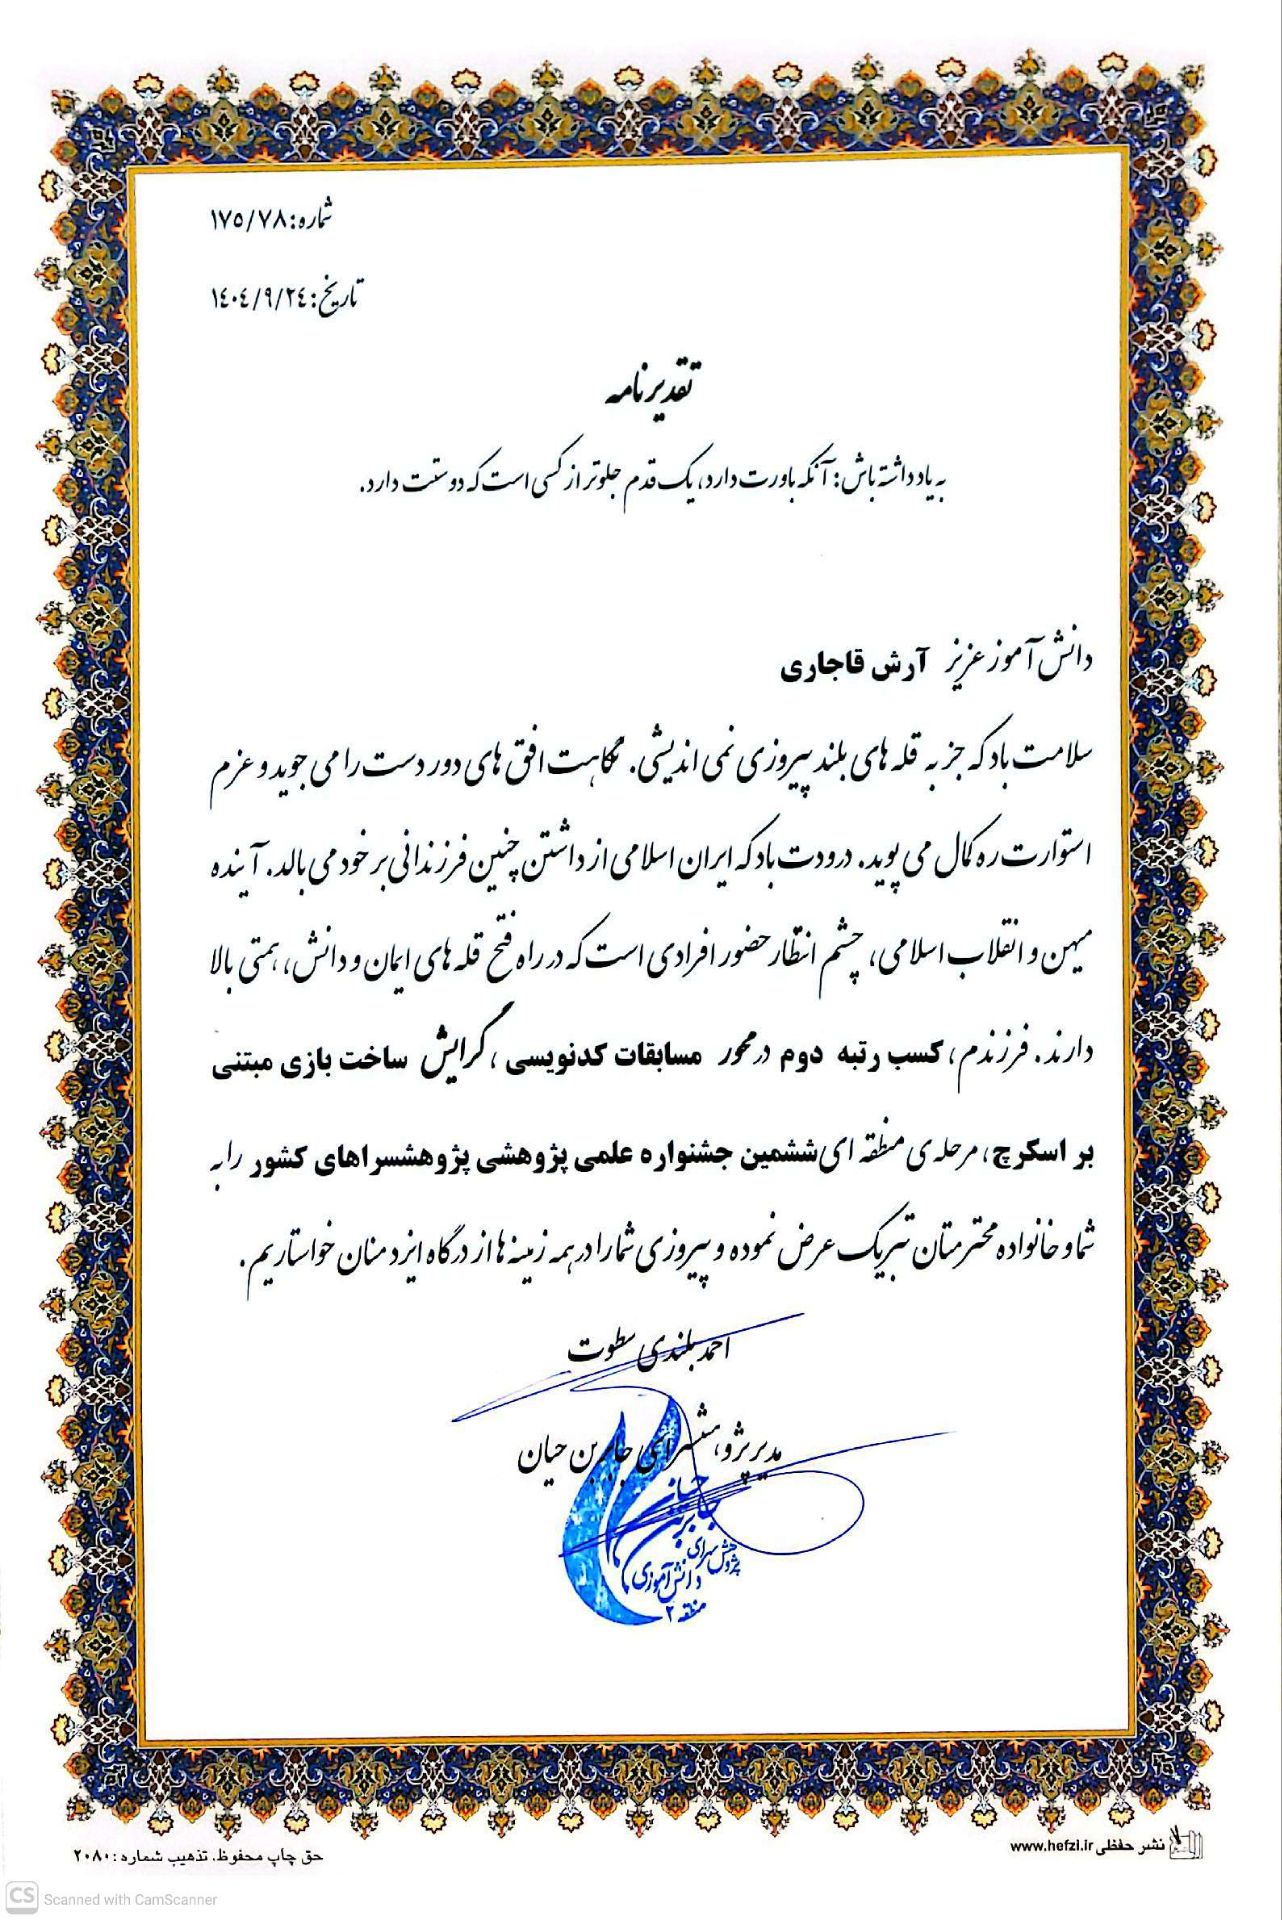 شماره: ۱۷۵/۷۸
تاریخ: ۱۴۰۴/۹/۲۴
تقدیرنامه
به یاد داشته باش: آنکه باورت دارد، یک قدم جلوتر از کسی است که دوستت دارد.
دانش آموز عزیز آرش قاجاری
سلامت باد که جز به قله های بلند پیروزی نمی اندیشی. نگاهت افق های دور دست را می جوید و عزم
استوارت ره کمال می پوید. درودت باد که ایران اسلامی از داشتن چنین فرزندانی بر خود می بالد. آینده
میهن و انقلاب اسلامی، چشم انتظار حضور افرادی است که در راه فتح قله های ایمان و دانش، همتی بالا
دارند. فرزندم، کسب رتبه دوم در محور مسابقات کدنویسی ، گرایش ساخت بازی مبتنی
بر اسکرچ، مرحله ی منطقه ای ششمین جشنواره علمی پژوهشی پژوهشسراهای کشور را به
شما و خانواده محترمتان تبریک عرض نموده و پیروزی شما را در همه زمینه ها از درگاه ایزد منان خواستاریم.
احمد بلندی سطوت
مدیر پژوهشسرای جابربن حیان
جابربن حیان
پژوهش سرای
دانش آموزی
منطقه ۲
نشر حفظی www.hefzi.ir
حق چاپ محفوظ. تذهیب شماره: ۲۰۸۰
CS Scanned with CamScanner